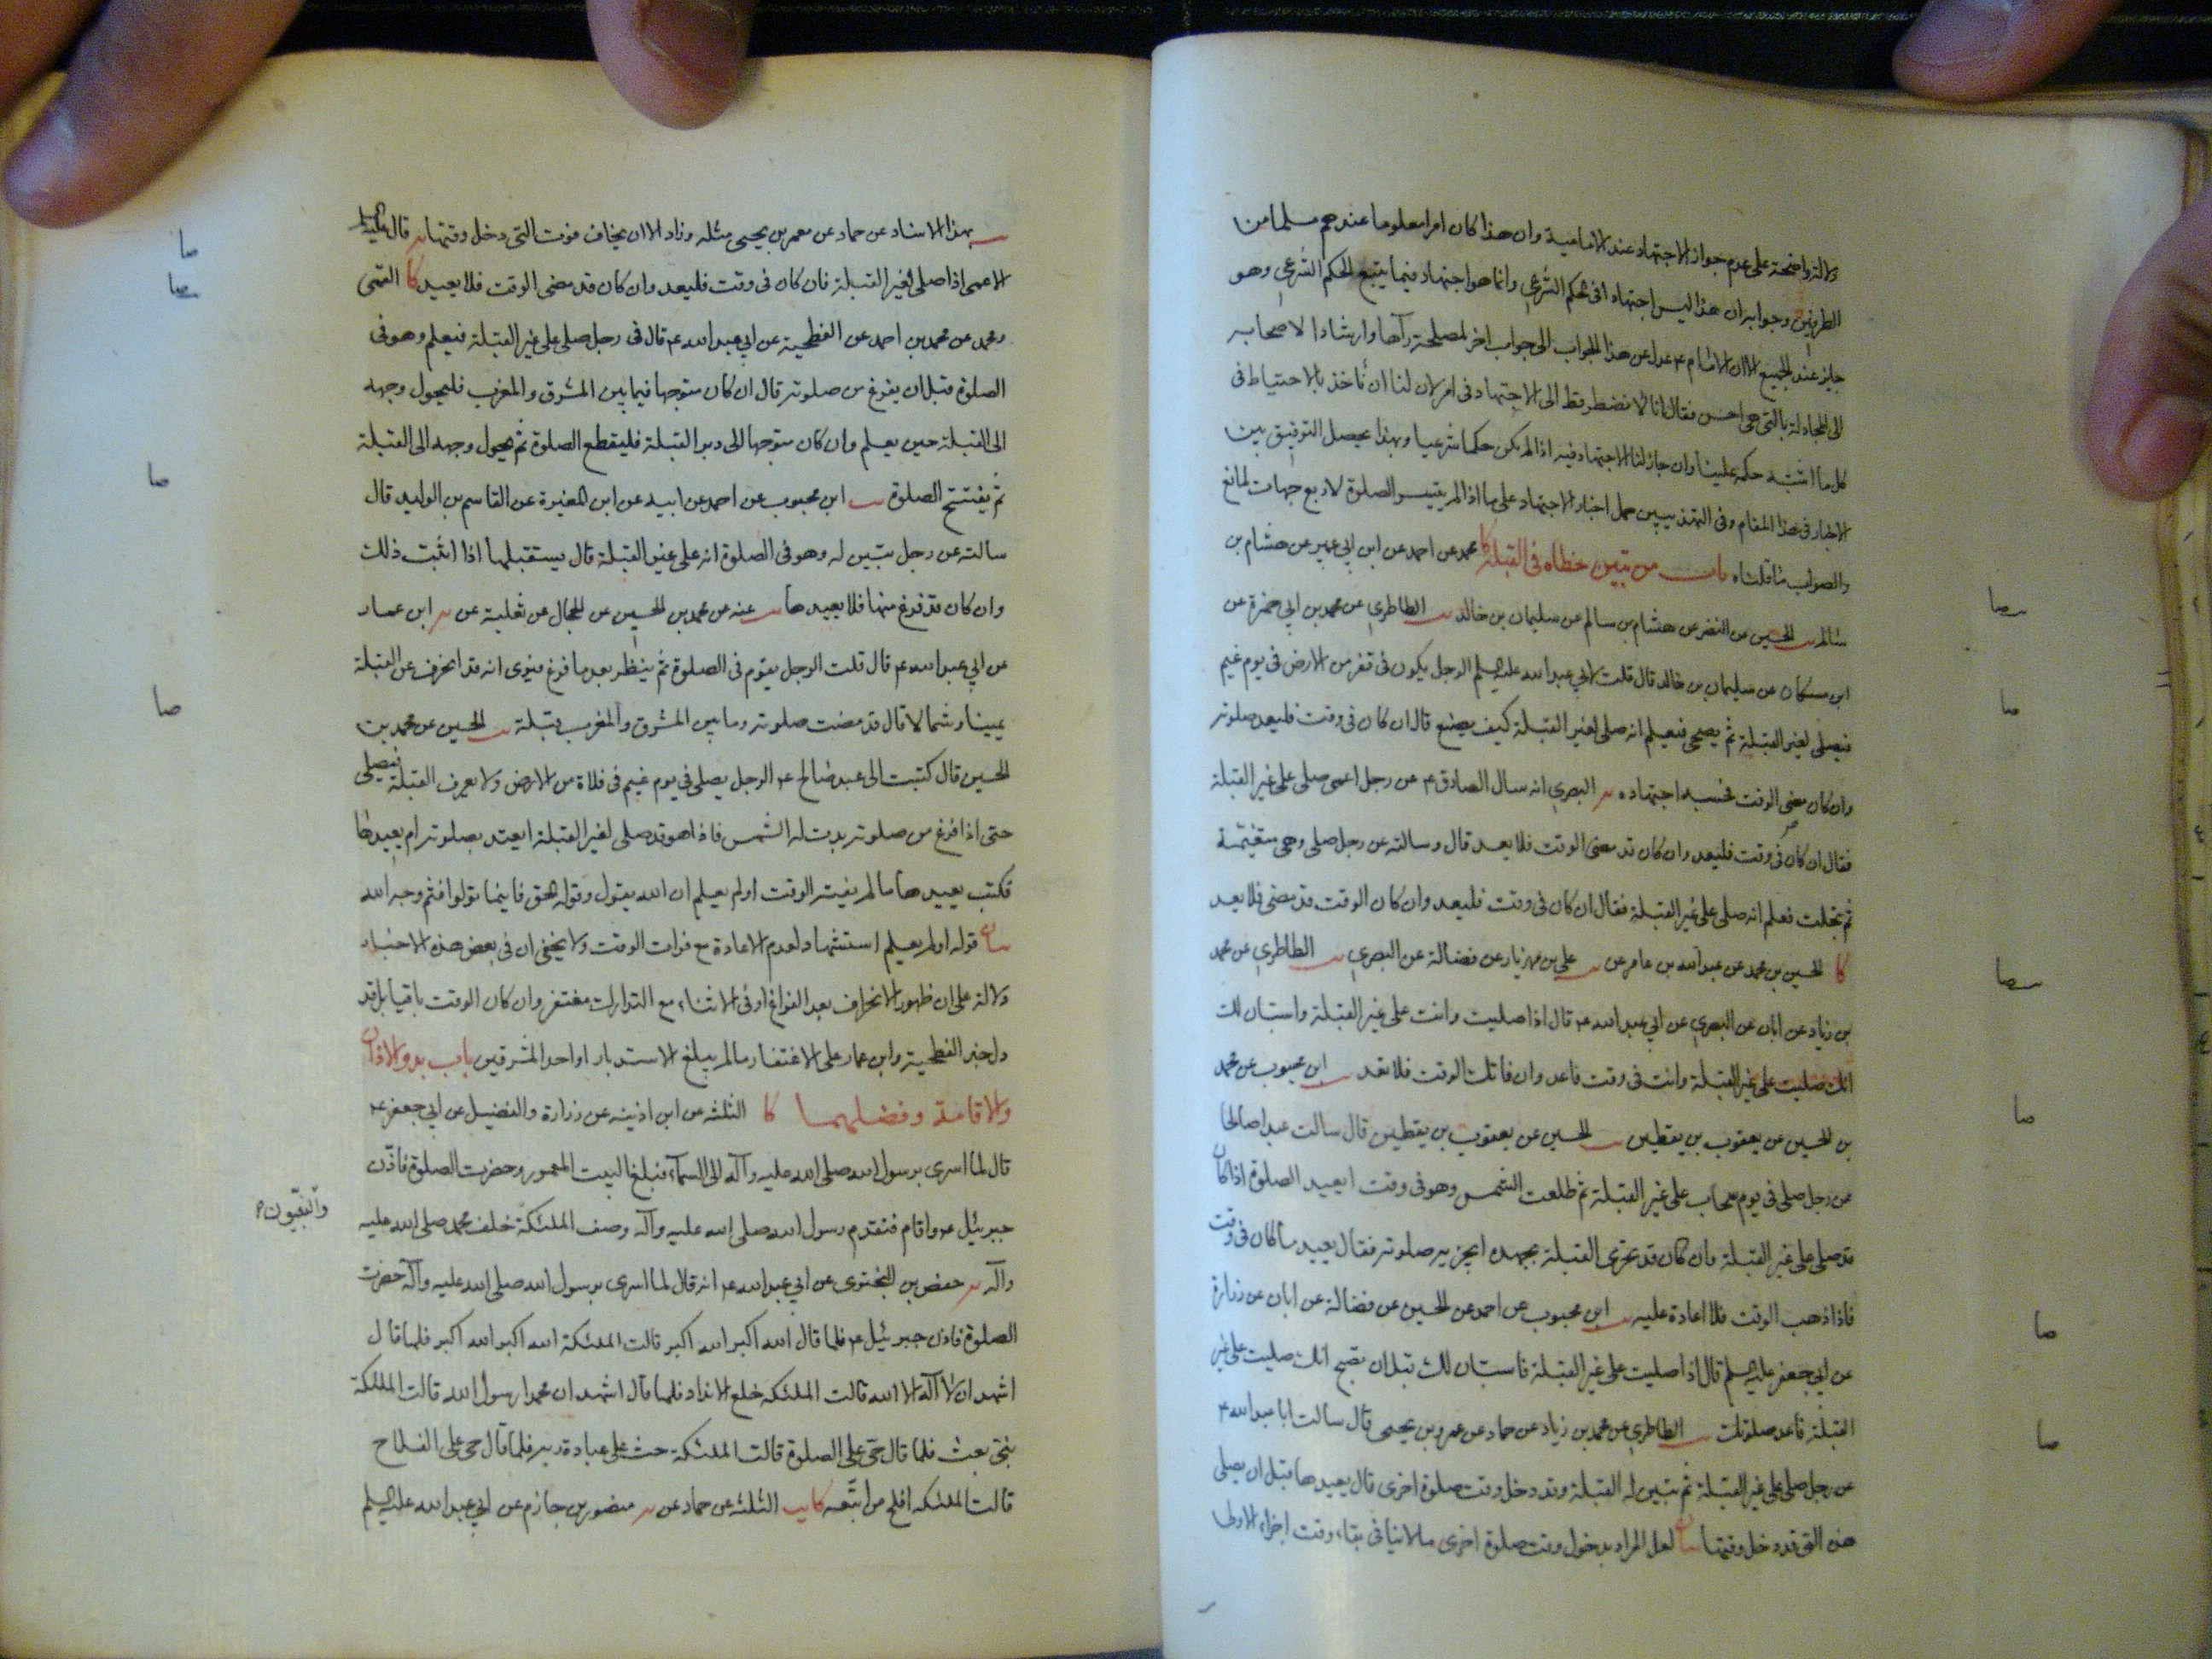 دلالة واضحة على عدم جواز الاجتهاد عند الامامية وان هذا كان امرا معلوما عندهم مسلما من
الطرفين وجوابه ان هذا ليس اجتهادا فى الحكم الشرعى وانما هو اجتهاد فيما يتبع الحكم الشرعى وهو
جايز عند الجميع الا ان الامام ع عدل عن هذا الجواب الى جواب اخر لمصلحة رآها وارشادا لاصحابه
الى المجادلة بالتى هى احسن فقال انا لا نضطر قط الى الاجتهاد فى امر لان لنا ان ناخذ بالاحتياط فى
كل ما اشتبه حكمه علينا وان جاز لنا الاجتهاد فيه اذا لم يكن حكما شرعيا وبهذا يحصل التوفيق بين
الاخبار فى هذا المقام وفى التهذيبين حمل اخبار الاجتهاد على ما اذا لم يتيسر الصلوة لاربع جهات لمانع
والصواب ما قلناه باب من تبين خطاؤه فى القبلة كا محمد عن احمد عن ابن ابي عمير عن هشام بن
سالم يب الحسين عن النضر عن هشام بن سالم عن سليمان بن خالد يب الطاطرى عن محمد بن ابي حمزة عن
ابن مسكان عن سليمان بن خالد قال قلت لابي عبد الله عليه السلم الرجل يكون فى قفر من الارض فى يوم غيم
فيصلى لغير القبلة ثم يصحى فيعلم انه صلى لغير القبلة كيف يصنع قال ان كان فى وقت فليعد صلوته
وان كان مضى الوقت فحسبه اجتهاده يه البصرى انه سال الصادق ع عن رجل اعمى صلى على غير القبلة
فقال ان كان فى وقت فليعد وان كان قد مضى الوقت فلا يعد قال وسالته عن رجل صلى وهى متغيمة
ثم تجلت فعلم انه صلى على غير القبلة فقال ان كان فى وقت فليعد وان كان الوقت قد مضى فلا يعد
كا الحسين بن محمد عن عبد الله بن عامر عن يب على بن مهزيار عن فضالة عن البصرى يب الطاطرى عن محمد
بن زياد عن ابان عن البصرى عن ابي عبد الله ع قال اذا صليت وانت على غير القبلة واستبان لك
انك صليت على غير القبلة وانت فى وقت فاعد وان فاتك الوقت فلا تعد يب ابن محبوب عن محمد
بن الحسين عن يعقوب بن يقطين يب الحسين عن يعقوب بن يقطين قال سالت عبدا صالحا
عن رجل صلى فى يوم سحاب على غير القبلة ثم طلعت الشمس وهو فى وقت ايعيد الصلوة اذا كان
قد صلى على غير القبلة وان كان قد تحرى القبلة بجهده ايجزيه صلوته فقال يعيد ما كان فى وقت
فاذا ذهب الوقت فلا اعادة عليه يب ابن محبوب عن احمد عن الحسين عن فضالة عن ابان عن زرارة
عن ابي جعفر عليه السلم قال اذا صليت على غير القبلة فاستبان لك قبل ان تصبح انك صليت على غير
القبلة فاعد صلوتك يب الطاطرى عن محمد بن زياد عن حماد عن عمرو بن يحيى قال سالت ابا عبد الله ع
عن رجل صلى على غير القبلة ثم تبين له القبلة وقد دخل وقت صلوة اخرى قال يعيدها قبل ان يصلى
هذه التى قد دخل وقتها بيان لعل المراد بدخول وقت صلوة اخرى ما لا ينافى بقاء وقت اجزاء الاولى
يب بهذا الاسناد عن حماد عن معمر بن يحيى مثله وزاد الا ان يخاف فوت التى دخل وقتها يه قال عليه السلم
الاعمى اذا صلى لغير القبلة فان كان فى وقت فليعد وان كان قد مضى الوقت فلا يعيد كا القمى
ومحمد عن محمد بن احمد عن الفطحية عن ابي عبد الله ع قال فى رجل صلى على غير القبلة فيعلم وهو فى
الصلوة قبل ان يفرغ من صلوته قال ان كان متوجها فيما بين المشرق والمغرب فليحول وجهه
الى القبلة حين يعلم وان كان متوجها الى دبر القبلة فليقطع الصلوة ثم يحول وجهه الى القبلة
ثم يفتتح الصلوة يب ابن محبوب عن احمد عن ابيه عن ابن المغيرة عن القاسم بن الوليد قال
سالته عن رجل تبين له وهو فى الصلوة انه على غير القبلة قال يستقبلها اذا اثبت ذلك
وان كان قد فرغ منها فلا يعيدها يب عنه عن محمد بن الحسين عن الحجال عن ثعلبة عن يه ابن عمار
عن ابي عبد الله ع قال قلت الرجل يقوم فى الصلوة ثم ينظر بعد ما فرغ فيرى انه قد انحرف عن القبلة
يمينا وشمالا قال قد مضت صلوته وما بين المشرق والمغرب قبلة يب الحسين عن محمد بن
الحسين قال كتبت الى عبد صالح ع الرجل يصلى فى يوم غيم فى فلاة من الارض ولا يعرف القبلة فيصلى
حتى اذا فرغ من صلوته بدت له الشمس فاذا هو قد صلى لغير القبلة ايعتد بصلوته ام يعيدها
فكتب يعيدها ما لم يفته الوقت اولم يعلم ان الله يقول وقوله الحق فاينما تولوا فثم وجه الله
بيان قوله اولم يعلم استشهاد لعدم الاعادة مع فوات الوقت ولا يخفى ان فى بعض هذه الاخبار
دلالة على ان ظهور الانحراف بعد الفراغ او فى الاثناء مع التدارك مغتفر وان كان الوقت باقيا بل قد
دل خبر الفطحية وابن عمار على الاغتفار ما لم يبلغ الاستدبار او احد المشرقين باب بدو الاذان
والاقامة وفضلهما كا الثلثة عن ابن اذينه عن زرارة والفضيل عن ابي جعفر ع
قال لما اسرى برسول الله صلى الله عليه وآله الى السماء فبلغ البيت المعمور وحضرت الصلوة فاذن
جبرئيل ع واقام فتقدم رسول الله صلى الله عليه وآله وصف الملئكة خلف محمد صلى الله عليه
وآله يه حفص بن البخترى عن ابي عبد الله ع انه قال لما اسرى برسول الله صلى الله عليه وآله حضرت
الصلوة فاذن جبرئيل ع فلما قال الله اكبر الله اكبر قالت الملئكة الله اكبر الله اكبر فلما قال
اشهد ان لا اله الا الله قالت الملئكه خلع الانداد فلما قال اشهد ان محمدا رسول الله قالت الملئكة
نبى بعث فلما قال حى على الصلوة قالت الملئكة حث على عبادة ربه فلما قال حى على الفلاح
قالت الملئكه افلح من اتبعه كا يب الثلثة عن حماد عن يه منصور بن حازم عن ابي عبد الله عليه السلم
والنبيون
صا